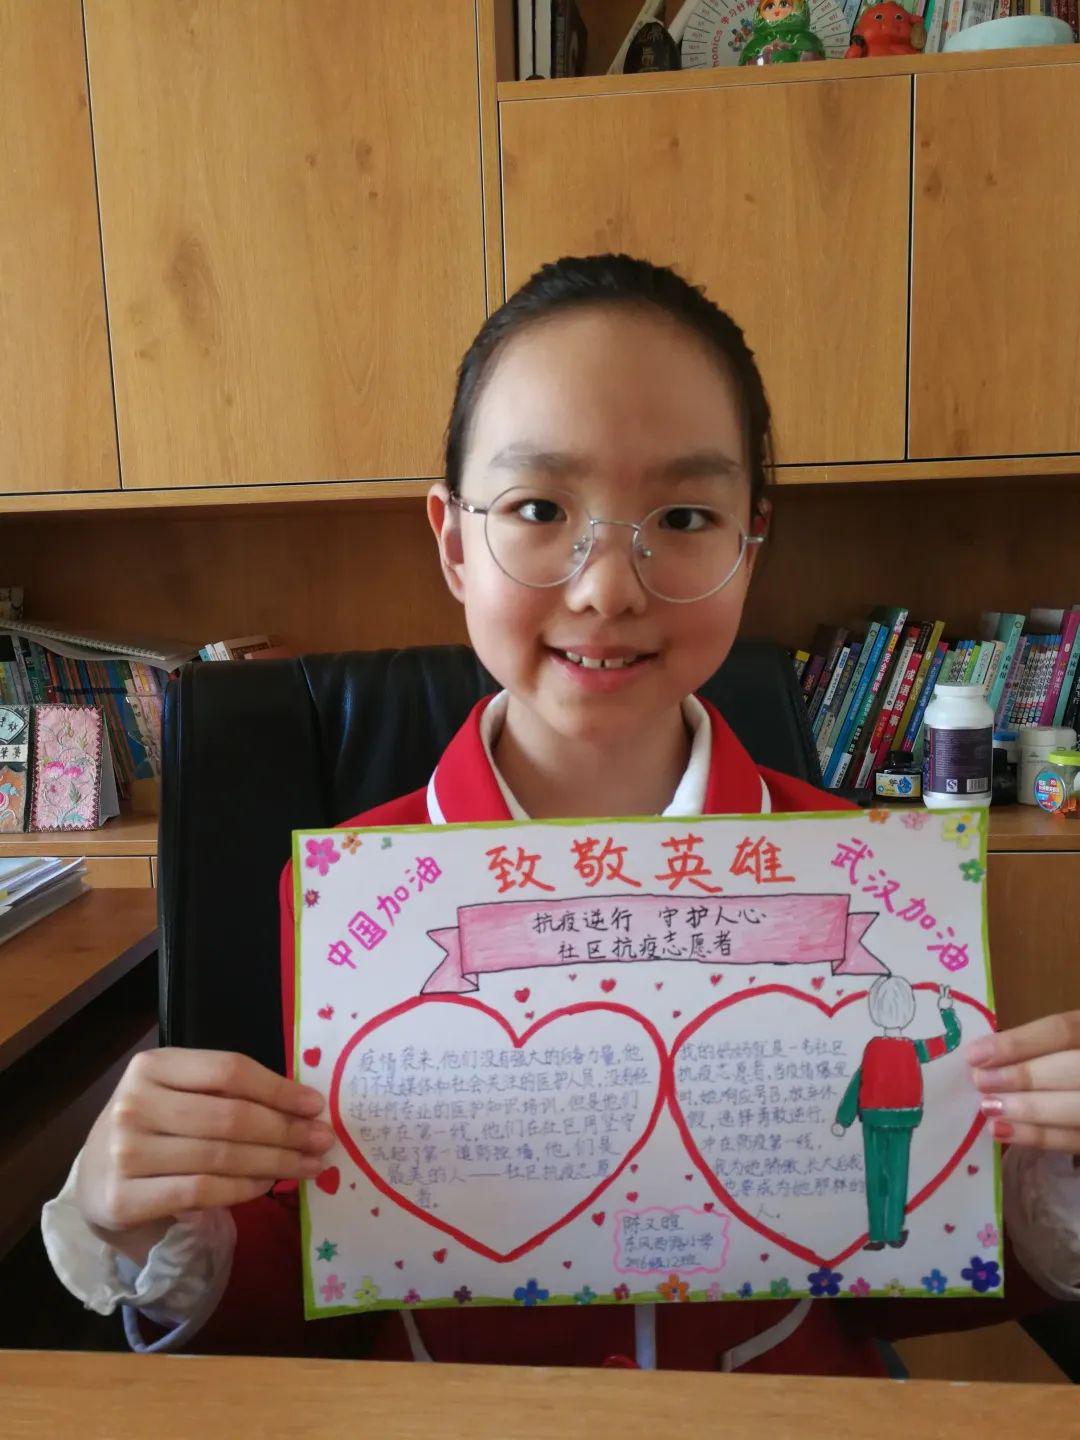 中国加油
致敬英雄
武汉加油
抗疫逆行 守护人心
社区抗疫志愿者
疫情袭来,他们没有强大的后备力量,他
们不是媒体和社会关注的医护人员,没有经
过任何专业的医护知识培训,但是他们
也冲在第一线,他们在社区用坚守
筑起了第一道防控墙,他们是
最美的人——社区抗疫志愿
者。
我的妈妈就是一名社区
抗疫志愿者,当疫情爆发
时,她响应号召,放弃休
假,选择勇敢逆行,
冲在防疫第一线,
我为她骄傲,长大后我
也要成为她那样的
人。
陈义暄
东风西路小学
2016级12班
成语故事